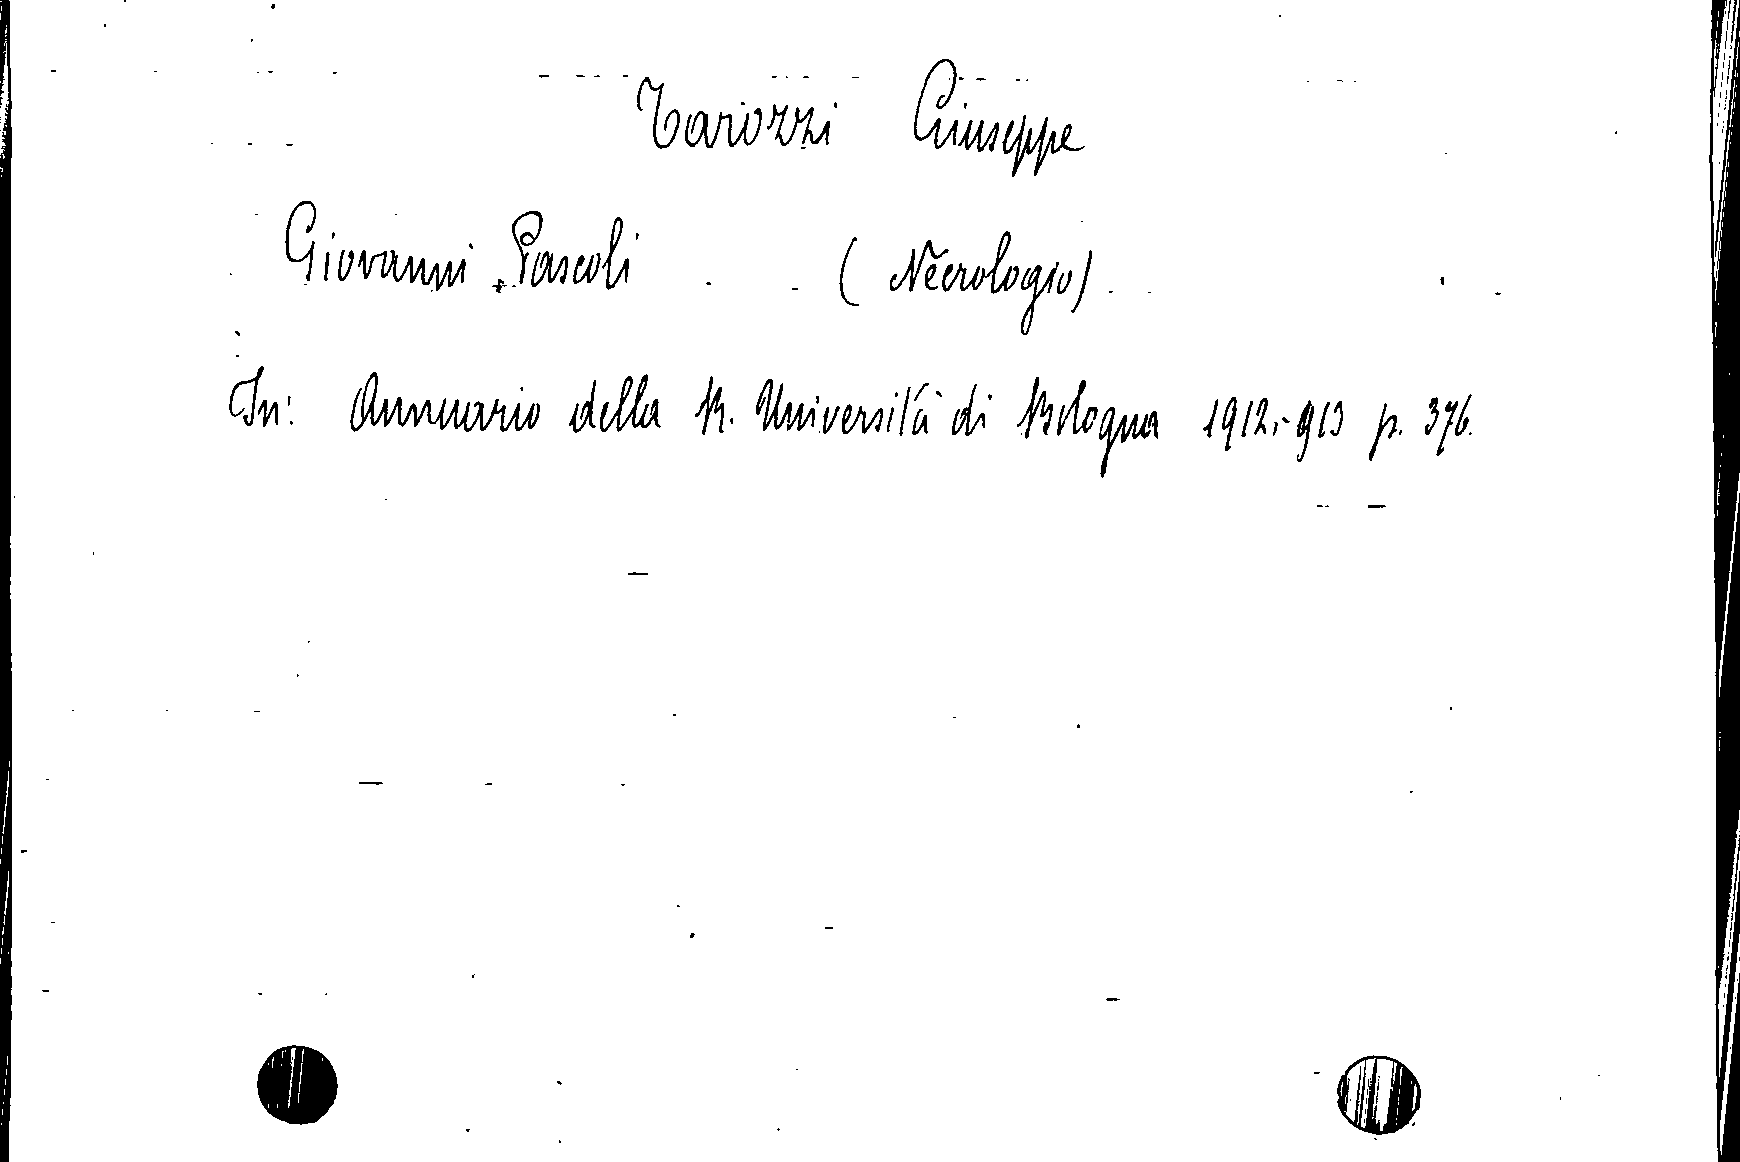 Tarozzi Giuseppe
Giovanni Pascoli (Necrologio)
In: Annuario della R. Università di Bologna 1912-913 p. 376.